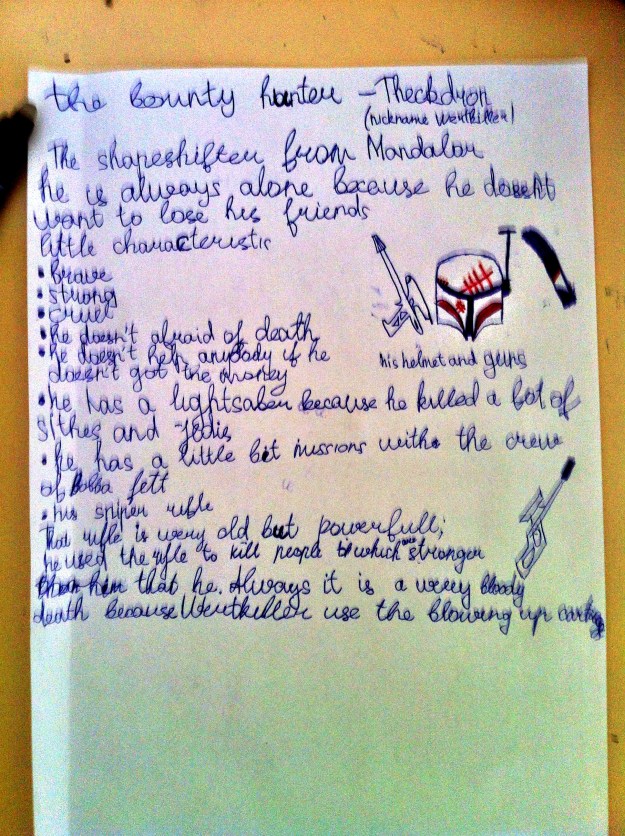 the bounty hunter – Theckdron
(nickname Wentkiller)
The shapeshifter from Mandalor
he is always alone because he doesnt
want to lose his friends
little characteristic
• brave
• strong
• cruel
• he doesn't afraid of death
• he doesn't help anybody if he
doesn't got the money
his helmet and guns
• he has a lightsaber because he killed a lot of
Sithes and Jedis
• he has a little bit missions with the crew
of Bobba fett
• his sniper rifle
That rifle is wery old but powerfull;
he used the rifle to kill people which are stronger
than him that he. Always it is a wery bloody
death because Wentkiller use the blowing up